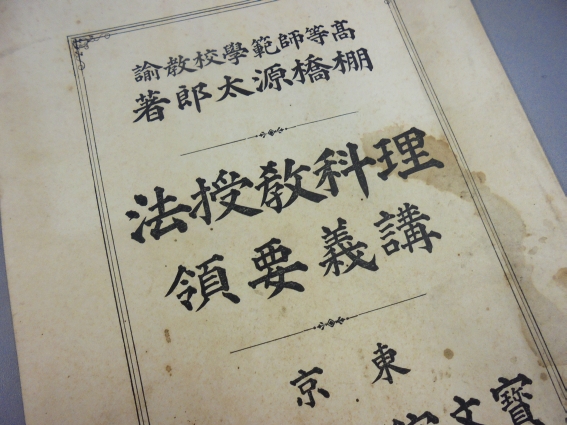 高等師範學校教諭
棚橋源太郎著
理科教授法
講義要領
東京
寶文